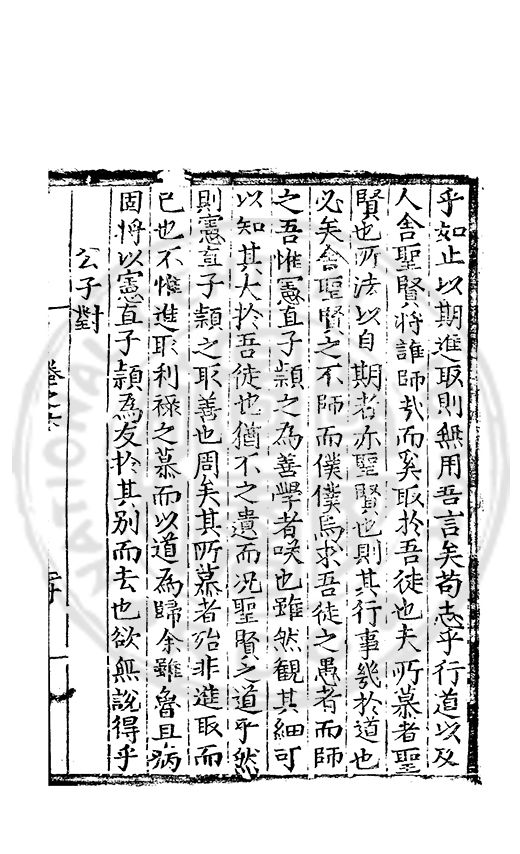 乎如止以期進取則無用吾言矣苟志乎行道以及
人舍聖賢將誰師哉而奚取於吾徒也夫所慕者聖
賢也所法以自期者亦聖賢也則其行事幾於道也
必矣舍聖賢之不師而僕僕焉求吾徒之愚者而師
之吾惟憲直子頴之為善學者唉也雖然観其細可
以知其大於吾徒也猶不之遺而况聖賢之道乎然
則憲直子頴之取善也周矣其所慕者殆非進取而
已也不惟進取利祿之慕而以道為歸余雖魯且病
固將以憲直子頴為友於其别而去也欲無說得乎
公子對
卷之六
NATIONAL